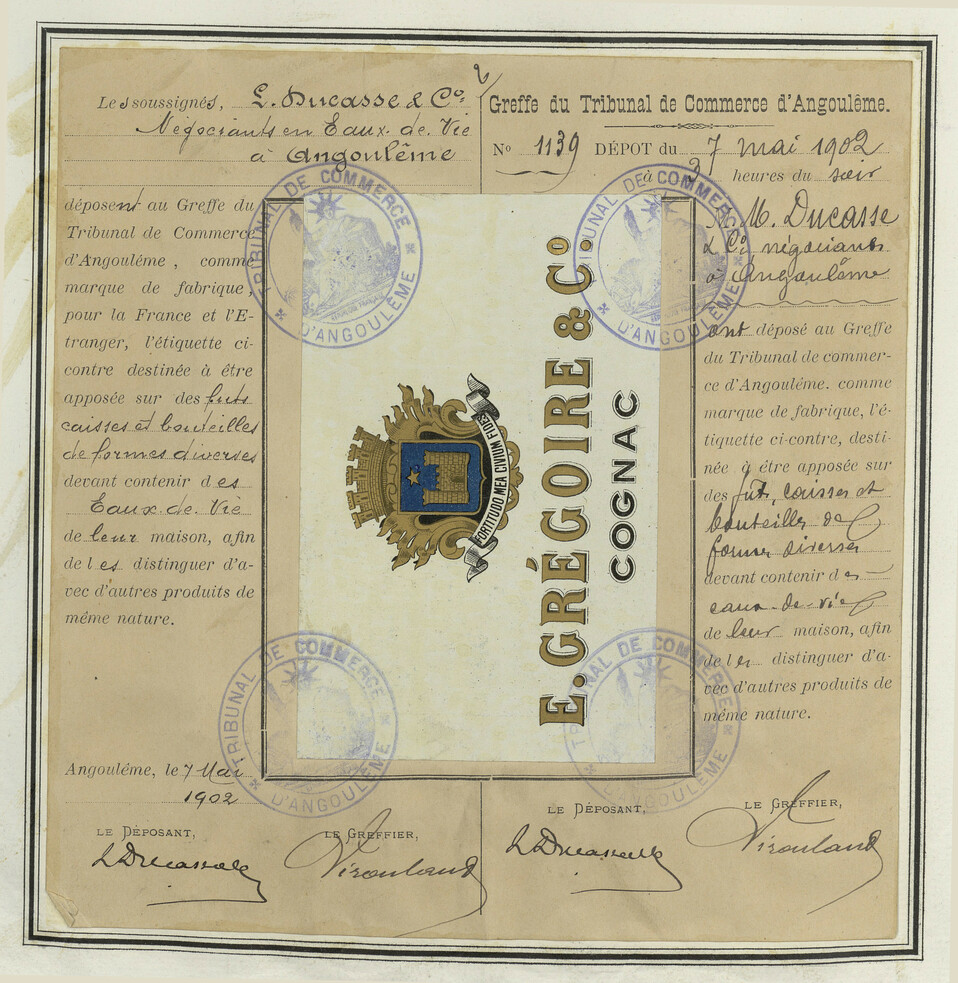 Les soussignés, L. Ducasse & Co.
Négociants en Eaux-de-Vie
à Angoulême
déposent au Greffe du
Tribunal de Commerce
d'Angoulême, comme
marque de fabrique,
pour la France et l'E-
tranger, l'étiquette ci-
contre destinée à être
apposée sur des futs
caisses et bouteilles
de formes diverses
devant contenir des
Eaux-de-Vie
de leur maison, afin
de les distinguer d'a-
vec d'autres produits de
même nature.
Angoulême, le 7 Mai
1902
LE DÉPOSANT,
LE GREFFIER,
Greffe du Tribunal de Commerce d'Angoulême.
No 1139 DÉPOT du 7 mai 1902
à 3 heures du soir
M. M. Ducasse
& Co. négociants
à Angoulême
ont déposé au Greffe
du Tribunal de commer-
ce d'Angoulême. comme
marque de fabrique, l'é-
tiquette ci-contre, desti-
née à être apposée sur
des fut, caisses et
bouteilles de
formes diverses
devant contenir des
eaux-de-vie
de leur maison, afin
de les distinguer d'a-
vec d'autres produits de
même nature.
LE DÉPOSANT,
LE GREFFIER,
E. GRÉGOIRE & Co.
COGNAC
FORTITUDO MEA CIVIUM FIDES
TRIBUNAL DE COMMERCE
D'ANGOULÊME
TRIBUNAL DE COMMERCE
D'ANGOULÊME
TRIBUNAL DE COMMERCE
D'ANGOULÊME
TRIBUNAL DE COMMERCE
D'ANGOULÊME